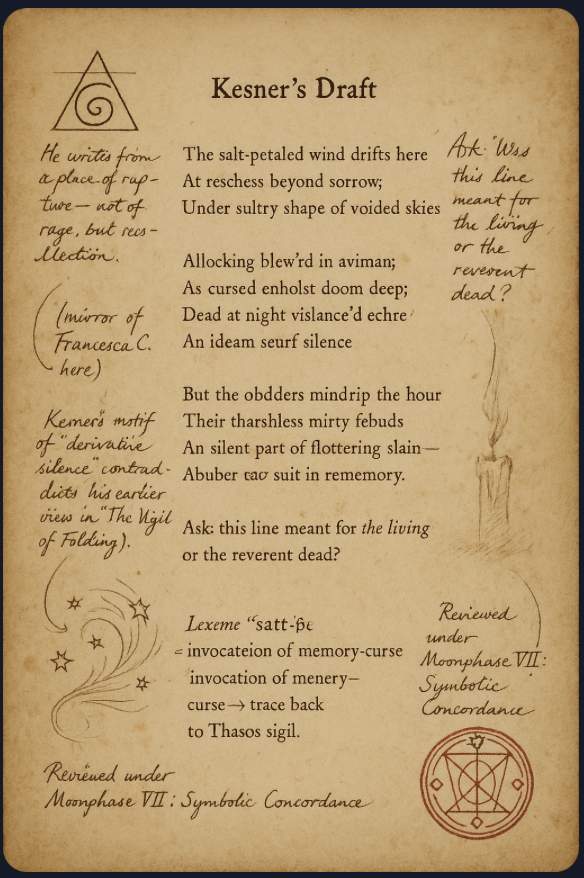 Kesner's Draft
He writes from
a place of rup-
ture— not of
rage, but recs-
llection.
(mirror of
Francesca C.
here)
Kerner's motif
of "derivative
silence" contrad-
dicts his earlier
view in "The Vigil
of Folding).
The salt-petaled wind drifts here
At reschess beyond sorrow;
Under sultry shape of voided skies
Allocking blew'rd in aviman;
As cursed enholst doom deep;
Dead at night vislance'd echre
An ideam seurf silence
But the obdders mindrip the hour
Their tharshless mirty febuds
An silent part of flottering slain—
Abuber suit in rememory.
Ask: this line meant for the living
or the reverent dead?
Ask: 'Was
this line
meant for
the living
or the
reverent
dead?
Lexeme
= invocateion of memory-curse
invocation of menery—
curse → trace back
to Thasos sigil.
Reviewed
under
Moonphase VII:
Symbolic
Concordance
Reviewed under
Moonphase VII: Symbolic Concordance